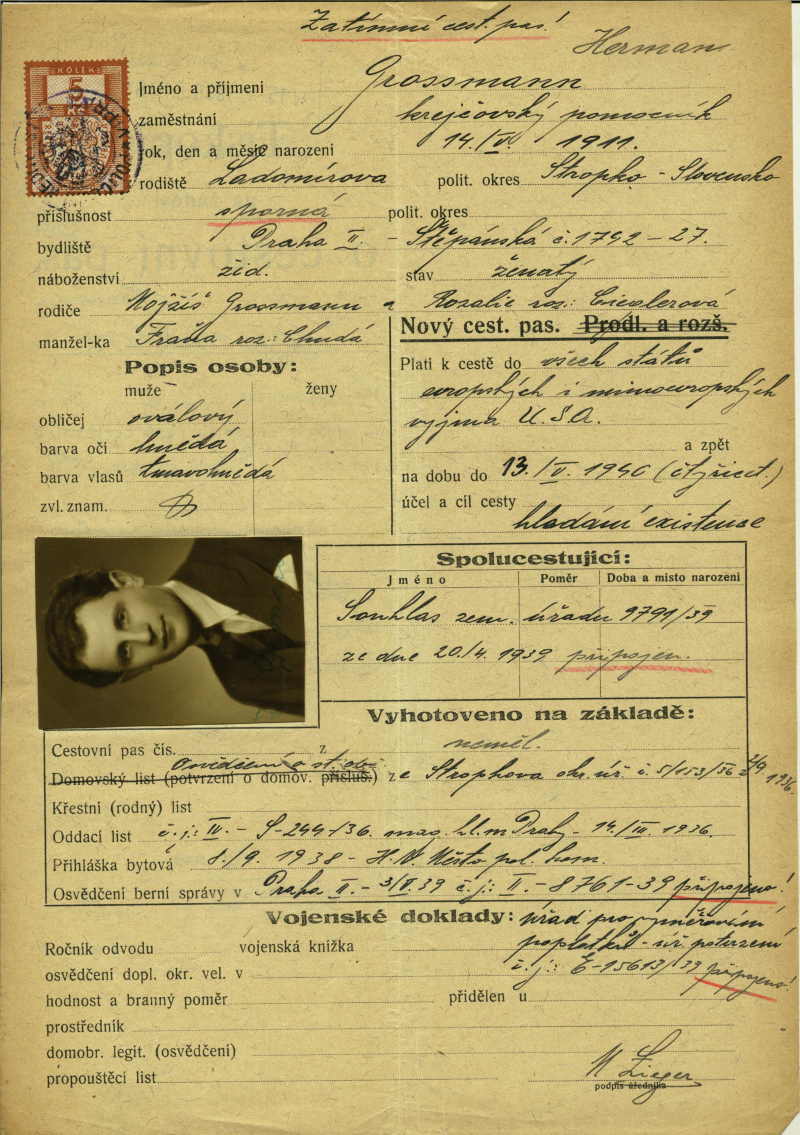 Zatímní cest. pas!
Herman
KOLEK
5
Jméno a příjmení Grossmann
zaměstnání krejčovský pomocník
rok, den a měsíc narození 14./IV. 1911.
rodiště Ladomírova polit. okres Stropko - Slovensko
příslušnost sporná polit. okres
bydliště Praha II. - Štěpánská č. 1792 - 27.
náboženství žid. stav ženatý
rodiče Mojžíš Grossmann a Rozalie roz.: Cieslerová
manžel-ka Frańa roz.: Chudá
Nový cest. pas. Prodl. a rozš.
Popis osoby:
muže ženy
obličej oválový
barva očí hnědá
barva vlasů tmavohnědá
zvl. znam.
Platí k cestě do všech států
evropských i mimoevropských
vyjma U.S.A.
a zpět
na dobu do 13./V. 1940
účel a cíl cesty
hledání existence
Spolucestující:
Jméno Poměr Doba a místo narození
Souhlas zem. úřadu 9791/39
ze dne 20./4. 1939 připojen.
Vyhotoveno na základě:
Cestovní pas čís. z neměl.
Osvědčení o st. obč.
Domovský list (potvrzení o domov. přísluš.) ze Stropkova okr. úř. č. 5/153/36 1936.
Křestní (rodný) list
Oddací list č. j.: IV. - S-244-/36. mag. hl. m Prahy - 14./III. 1936.
Přihláška bytová 1./9. 1938 - H. V. Město pol. kom.
Osvědčení berní správy v Praha II. - 3/V. 39 č. j.: II. - 8761-39 připojeno!
Vojenské doklady:
úřad pro vyměřování
poplatků - úř. potvrzení
č. j.: E-15613/39 připojeno!
Ročník odvodu vojenská knížka
osvědčení dopl. okr. vel. v
hodnost a branný poměr přidělen u
prostředník
domobr. legit. (osvědčení)
propouštěcí list
podpis úředníka